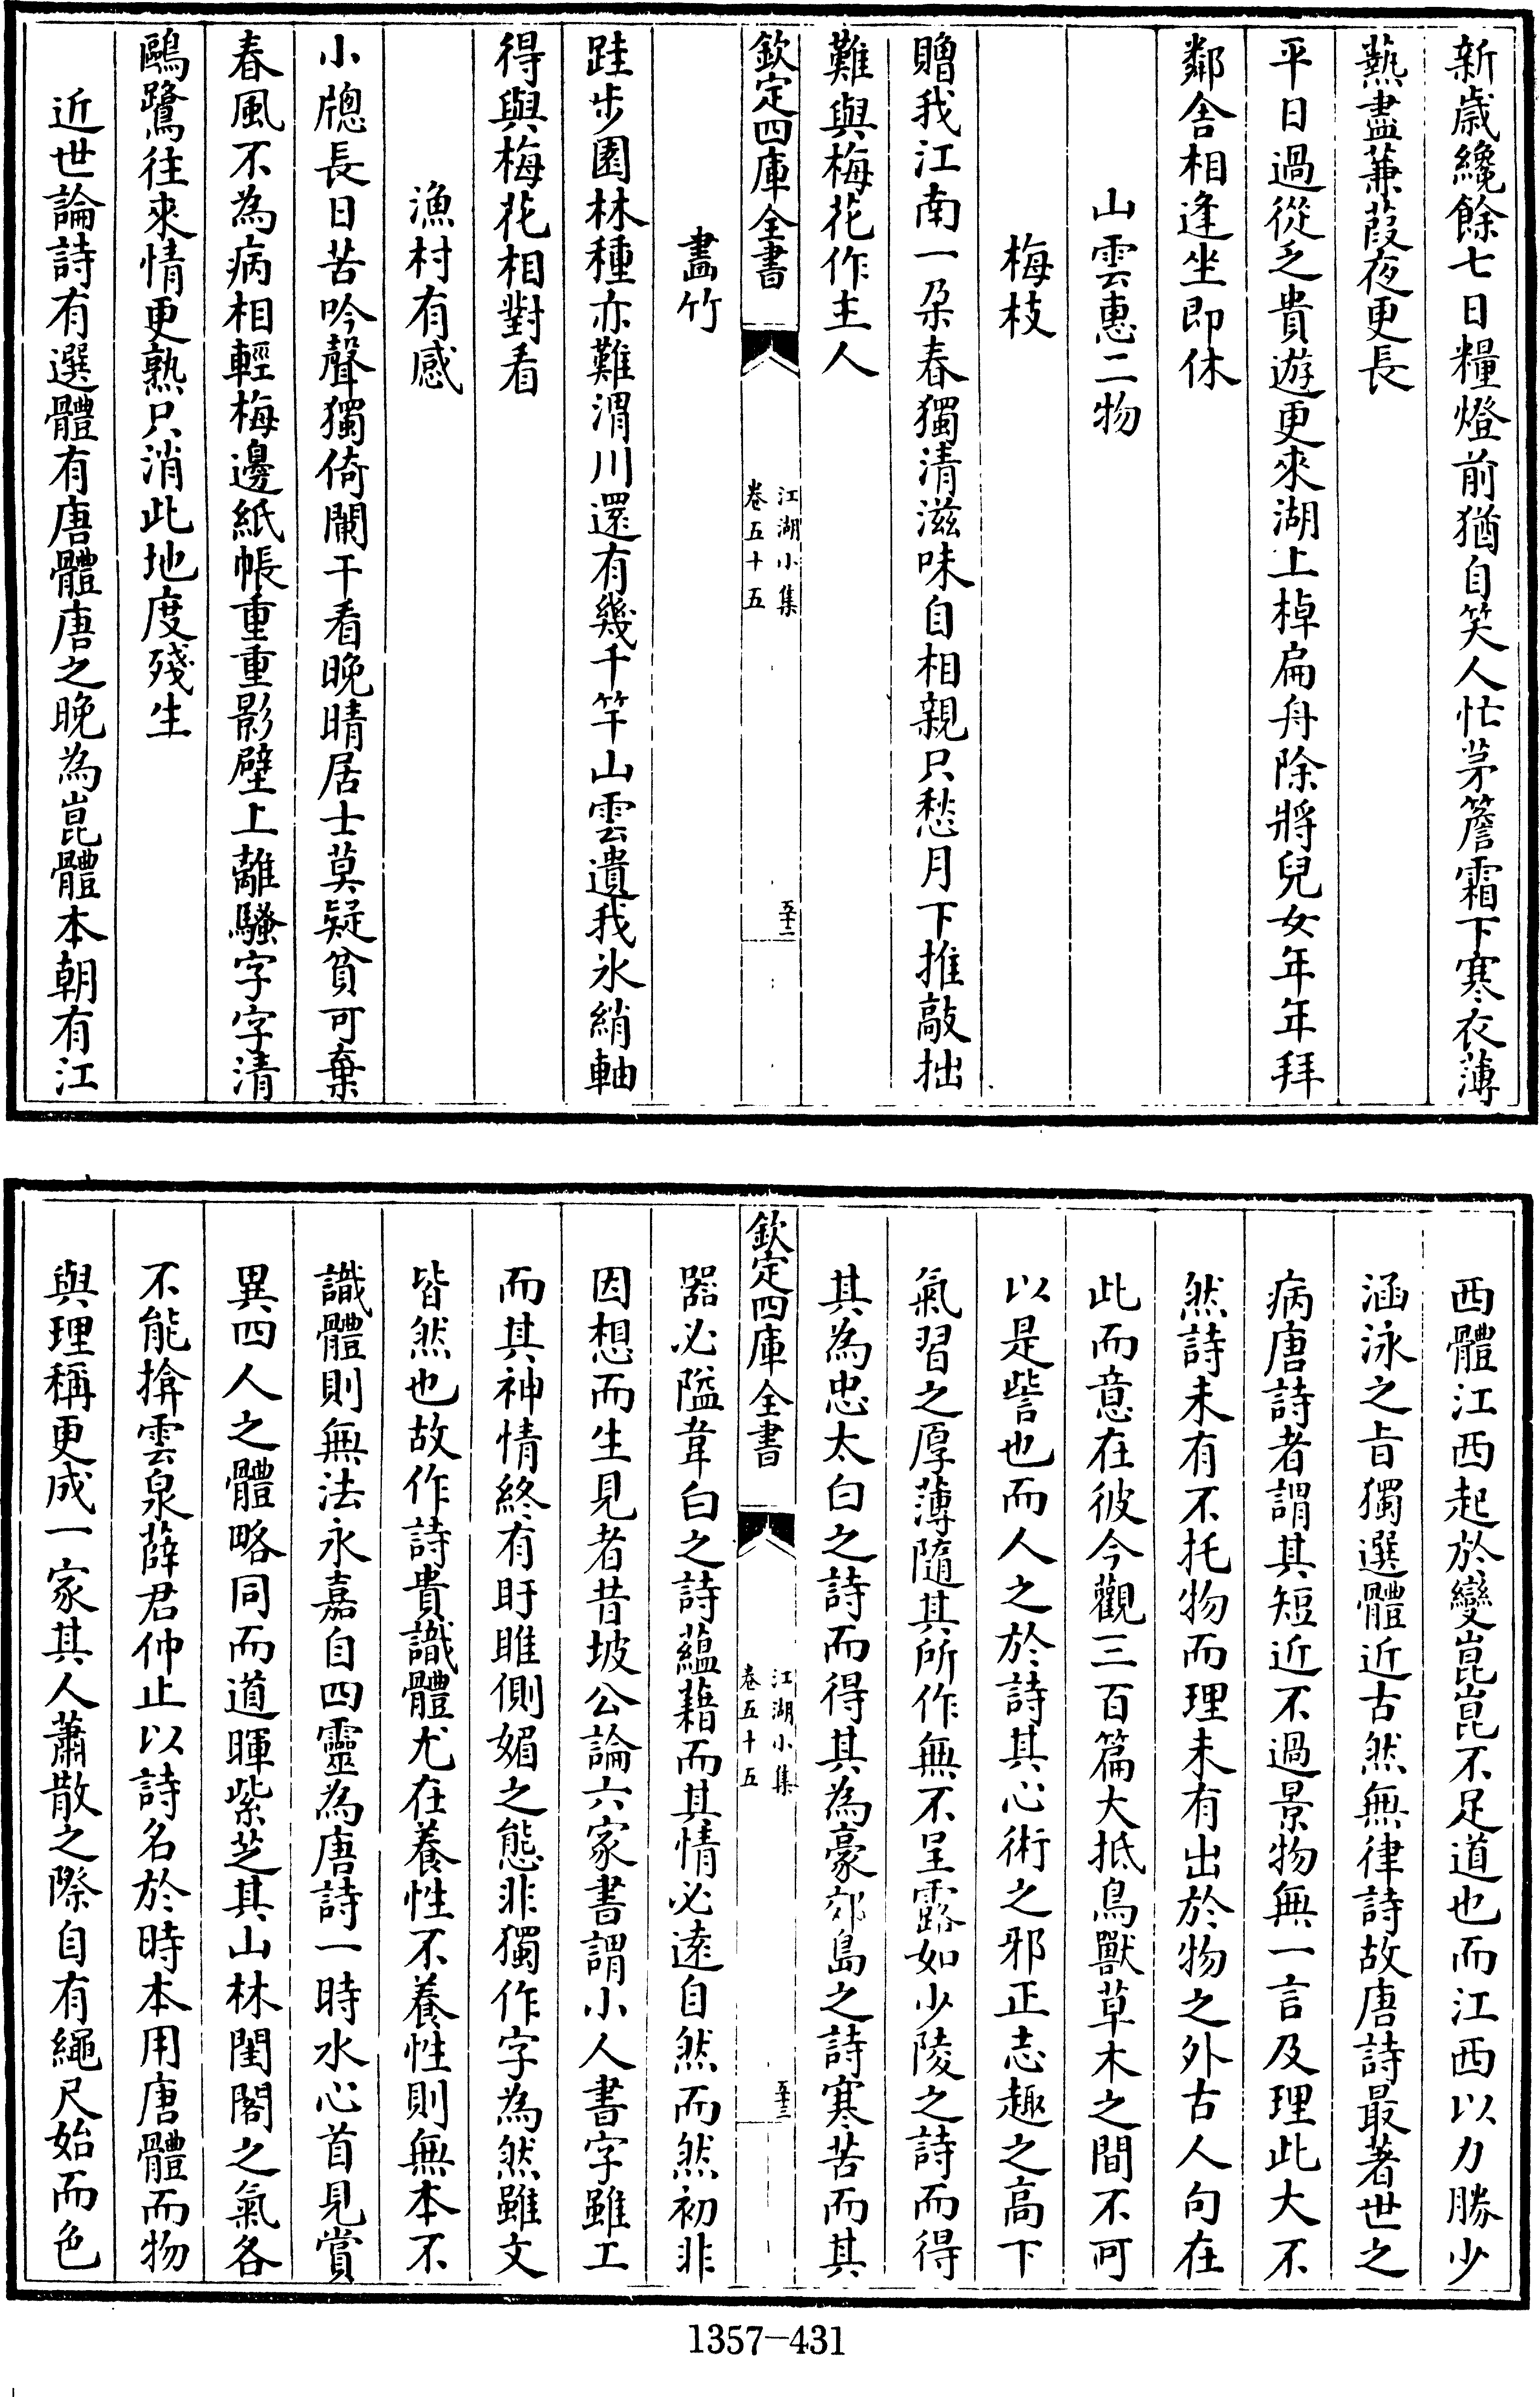 新歲纔餘七日糧燈前猶自笑人忙茅簷霜下寒衣薄
爇盡蒹葭夜更長
平日過從乏貴遊更來湖上棹扁舟除將兒女年年拜
鄰舍相逢坐即休
山雲惠二物
梅枝
贈我江南一朶春獨清滋味自相親只愁月下推敲拙
難與梅花作主人
欽定四庫全書
江湖小集
卷五十五
五十二
畫竹
跬步園林種亦難渭川還有幾千竿山雲遺我氷綃軸
得與梅花相對看
漁村有感
小牕長日苦吟聲獨倚闌干看晚晴居士莫疑貧可棄
春風不為病相輕梅邊紙帳重重影壁上離騷字字清
鷗鷺往來情更熟只消此地度殘生
近世論詩有選體有唐體唐之晚為崑體本朝有江
西體江西起於變崑崑不足道也而江西以力勝少
涵泳之旨獨選體近古然無律詩故唐詩最著世之
病唐詩者謂其短近不過景物無一言及理此大不
然詩未有不托物而理未有出於物之外古人句在
此而意在彼今觀三百篇大抵鳥獸草木之間不可
以是訾也而人之於詩其心術之邪正志趣之高下
氣習之厚薄隨其所作無不呈露如少陵之詩而得
其為忠太白之詩而得其為豪郊島之詩寒苦而其
欽定四庫全書
江湖小集
卷五十五
五十三
器必隘韋白之詩蘊藉而其情必遠自然而然初非
因想而生見者昔坡公論六家書謂小人書字雖工
而其神情終有盱睢側媚之態非獨作字為然雖文
皆然也故作詩貴識體尤在養性不養性則無本不
識體則無法永嘉自四靈為唐詩一時水心首見賞
異四人之體略同而道暉紫芝其山林閨閣之氣各
不能揜雲泉薛君仲止以詩名於時本用唐體而物
與理稱更成一家其人蕭散之際自有繩尺始而色
1357-431